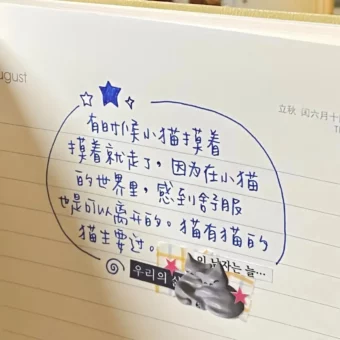 ugust
立秋 闰六月十
有时候小猫摸着
摸着就走了，因为在小猫
的世界里，感到舒服
也是可以离开的。猫有猫的
猫生要过。
의 남자는 늘…
우리의